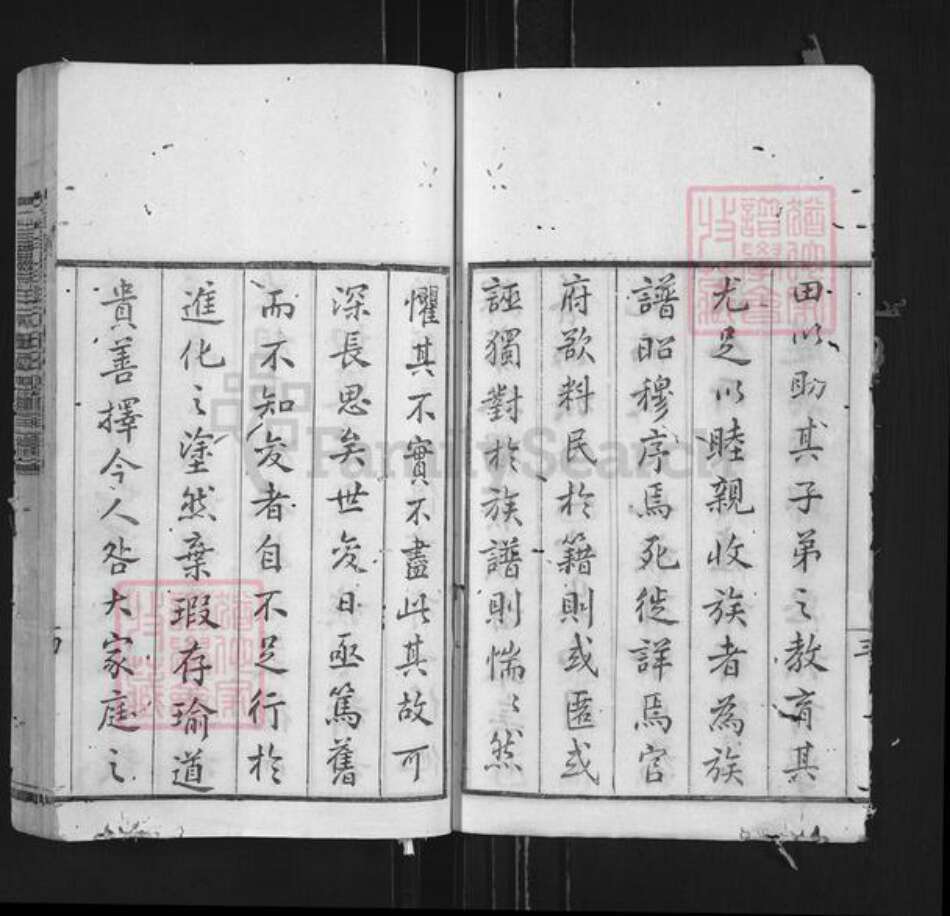 田以助其子弟之教育其
尤足以睦親收族者為族
譜昭穆序焉死徙詳焉官
府欲料民於籍則或匿或
誣獨對於族譜則惴〻然
懼其不實不盡此其故可
深長思矣世变日亟篤舊
而不知变者自不足行於
進化之塗然棄瑕存瑜道
貴善擇今人咎大家庭之
FamilySearch